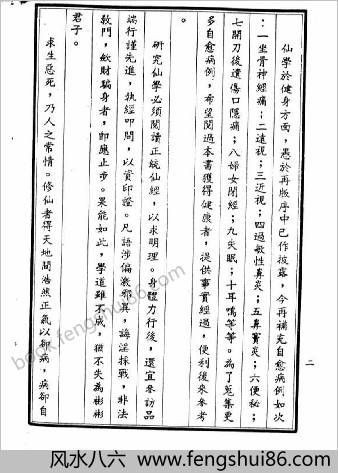 仙學於健身方面，愚於再版序中已作披露，今再補充自愈病例如次
：一坐骨神經痛；二遠視；三近視；四過敏性鼻炎；五鼻竇炎；六便秘；
七開刀後遺傷口隱痛；八婦女閉經；九失眠；十耳鳴等等。為了蒐集更
多自愈病例，希望閱過本書獲得健康者，提供事實經過，便利後來參考
。
研究仙學必須閱讀正統仙經，以求明理。身體力行後，還宜參訪品
端行謹先進，執經叩問，以資印證。凡語涉偏激邪異，誨淫採戰，非法
斂財騙身者，即應止步。果能如此，學道雖不成，猶不失為彬彬
君子。
求生惡死，乃人之常情。修仙者得天地間浩然正氣以卻病，病卻自
二
book.fengshui86.com
风水八六 www.fengshui86.com